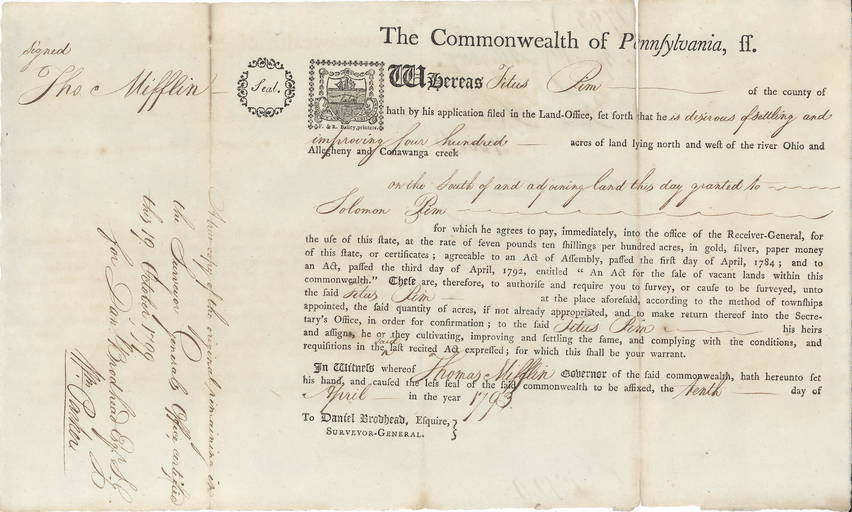 The Commonwealth of Pennſylvania, ſſ.
signed
Tho.s Mifflin
Seal.
F. & R. Bailey, printers.
Whereas Titus Pim of the county of
hath by his application filed in the Land-Office, ſet forth that he is desirous of settling and
improving four hundred acres of land lying north and weſt of the river Ohio and
Allegheny and Conawanga creek
on the South of and adjoining land this day granted to
Solomon Pim
for which he agrees to pay, immediately, into the office of the Receiver-General, for
the uſe of this ſtate, at the rate of ſeven pounds ten ſhillings per hundred acres, in gold, ſilver, paper money
of this ſtate, or certificates; agreeable to an Act of Aſſembly, paſſed the firſt day of April, 1784; and to
an Act, paſſed the third day of April, 1792, entitled “An Act for the ſale of vacant lands within this
commonwealth.” Theſe are, therefore, to authoriſe and require you to ſurvey, or cauſe to be ſurveyed, unto
the ſaid Titus Pim at the place aforeſaid, according to the method of townſhips
appointed, the ſaid quantity of acres, if not already appropriated, and to make return thereof into the Secre-
tary’s Office, in order for confirmation; to the ſaid Titus Pim his heirs
and aſſigns, he or they cultivating, improving and ſettling the ſame, and complying with the conditions, and
requiſitions in the said laſt recited Act expreſſed; for which this ſhall be your warrant.
In Witneſs whereof Thomas Mifflin Governor of the ſaid commonwealth, hath hereunto ſet
his hand, and cauſed the leſs ſeal of the ſaid commonwealth to be affixed, the tenth day of
April in the year 1793.
To Daniel Brodhead, Eſquire,
Surveyor-General.
A true copy of the original remaining in
the Surveyor Generals Office, certified
this 19 October 1799
for Dan.l Brodhead Esqr. S. G.
Wm. Parker